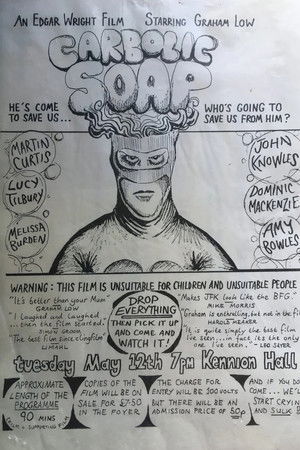 AN EDGAR WRIGHT FILM STARRING GRAHAM LOW
CARBOLIC
SOAP
HE'S COME
TO SAVE US...
WHO'S GOING TO
SAVE US FROM HIM?
MARTIN
CURTIS
LUCY
TILBURY
MELISSA
BURDEN
JOHN
KNOWLES
DOMINIC
MACKENZIE
AMY
BOWLES
WARNING: THIS FILM IS UNSUITABLE FOR CHILDREN AND UNSUITABLE PEOPLE
"It's better than your Mum"
GRAHAM LOW
"I laughed and laughed...
...then the film started."
SIMON GROOM
"The best film since clingfilm"
LIMAHL
DROP
EVERYTHING
THEN PICK IT UP
AND COME AND
WATCH IT!
"Makes JFK look like the BFG."
MIKE MORRIS
"Graham is enthralling, but not in the film
HAROLD
"It is quite simply the best film
I've seen... in fact its the only
one I've seen." - LEO SAYER
tuesday May 12th 7PM Kennion Hall
APPROXIMATE
LENGTH OF THE
PROGRAMME
90 MINS
FILM + SUPPORTING FILM
COPIES OF THE
FILM WILL BE ON
SALE FOR £7.50
IN THE FOYER
THE CHARGE FOR
ENTRY WILL BE 300 VOLTS
BUT THERE WILL BE AN
ADMISSION PRICE OF 50p
AND IF YOU DO
COME... WE'LL
START CRYING
AND SULK